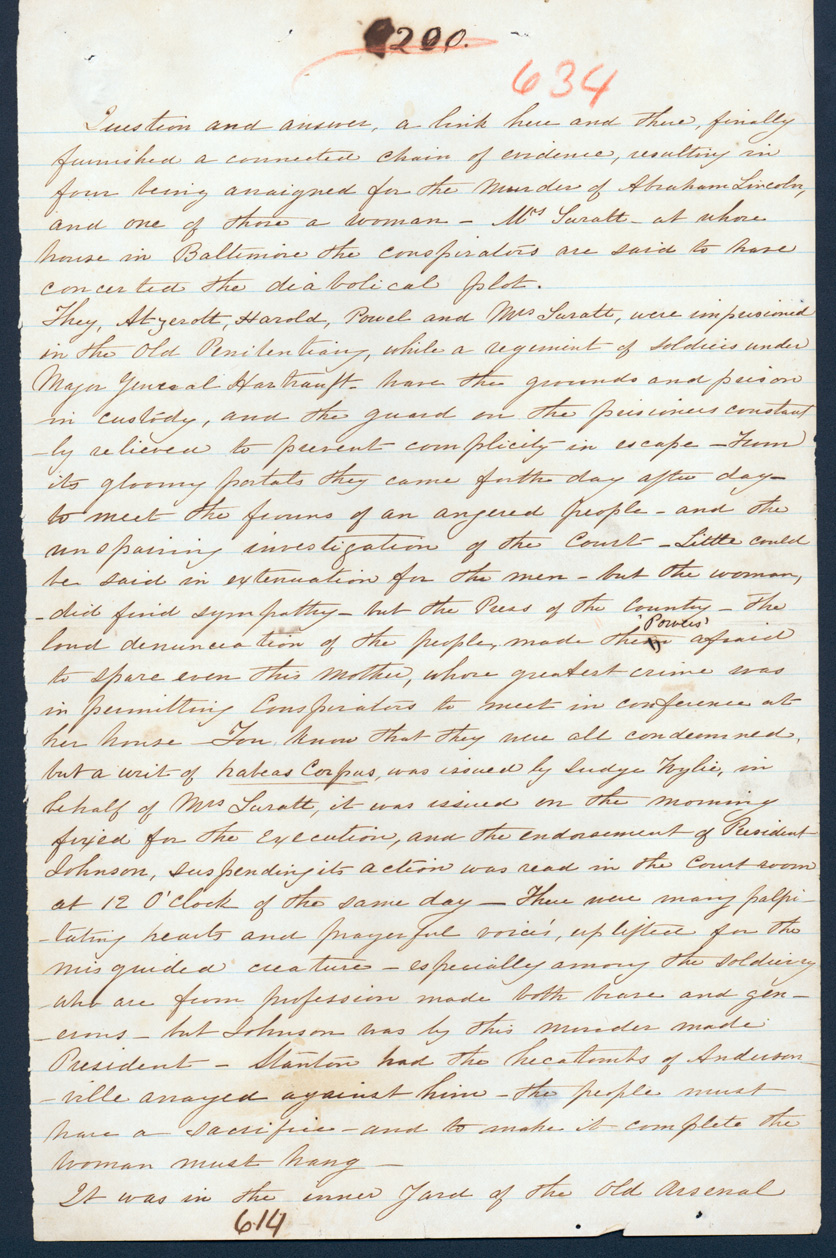 200.
634
Question and answer, a link here and there, finally
furnished a connected chain of evidence, resulting in
four being arraigned for the murder of Abraham Lincoln,
and one of those a woman - Mrs Suratt - at whose
house in Baltimore the conspirators are said to have
concerted the diabolical plot.
They, Atzerott, Harold, Powel and Mrs Suratt, were imprisoned
in the Old Penitentiary, while a regiment of soldiers under
Major General Hartrauft - have the grounds and prison
in custody, and the guard on the prisioners constant
-ly relieved to prevent complicity in escape - From
its gloomy portals they came forth day after day -
to meet the frowns of an angered people - and the
unspairing investigation of the Court - Little could
be said in extenuation for the men - but the woman,
- did find sympathy - but the Press of the Country - the
'Powers'
loud denunciation of the people, made them afraid
to spare even this mother, whose greatest crime was
in permitting Conspirators to meet in conference at
her house - You know that they were all condemned,
but a writ of habeas Corpus, was issued by Judge Wylie, in
behalf of Mrs Suratt, it was issued on the morning
fixed for the Execution, and the endorsement of President
Johnson, suspending its action was read in the Court room
at 12 O'clock of the same day - There were many palpi-
-tating hearts and prayerful voices, uplifted for the
misguided creature - especially among the soldiery
who are from profession made both brave and gen-
-erous - but Johnson was by this murder made
President - Stanton had the hecatombs of Anderson-
-ville arrayed against him - the people must
have a sacrifice - and to make it complete the
woman must hang -
It was in the inner Yard of the Old Arsenal
614